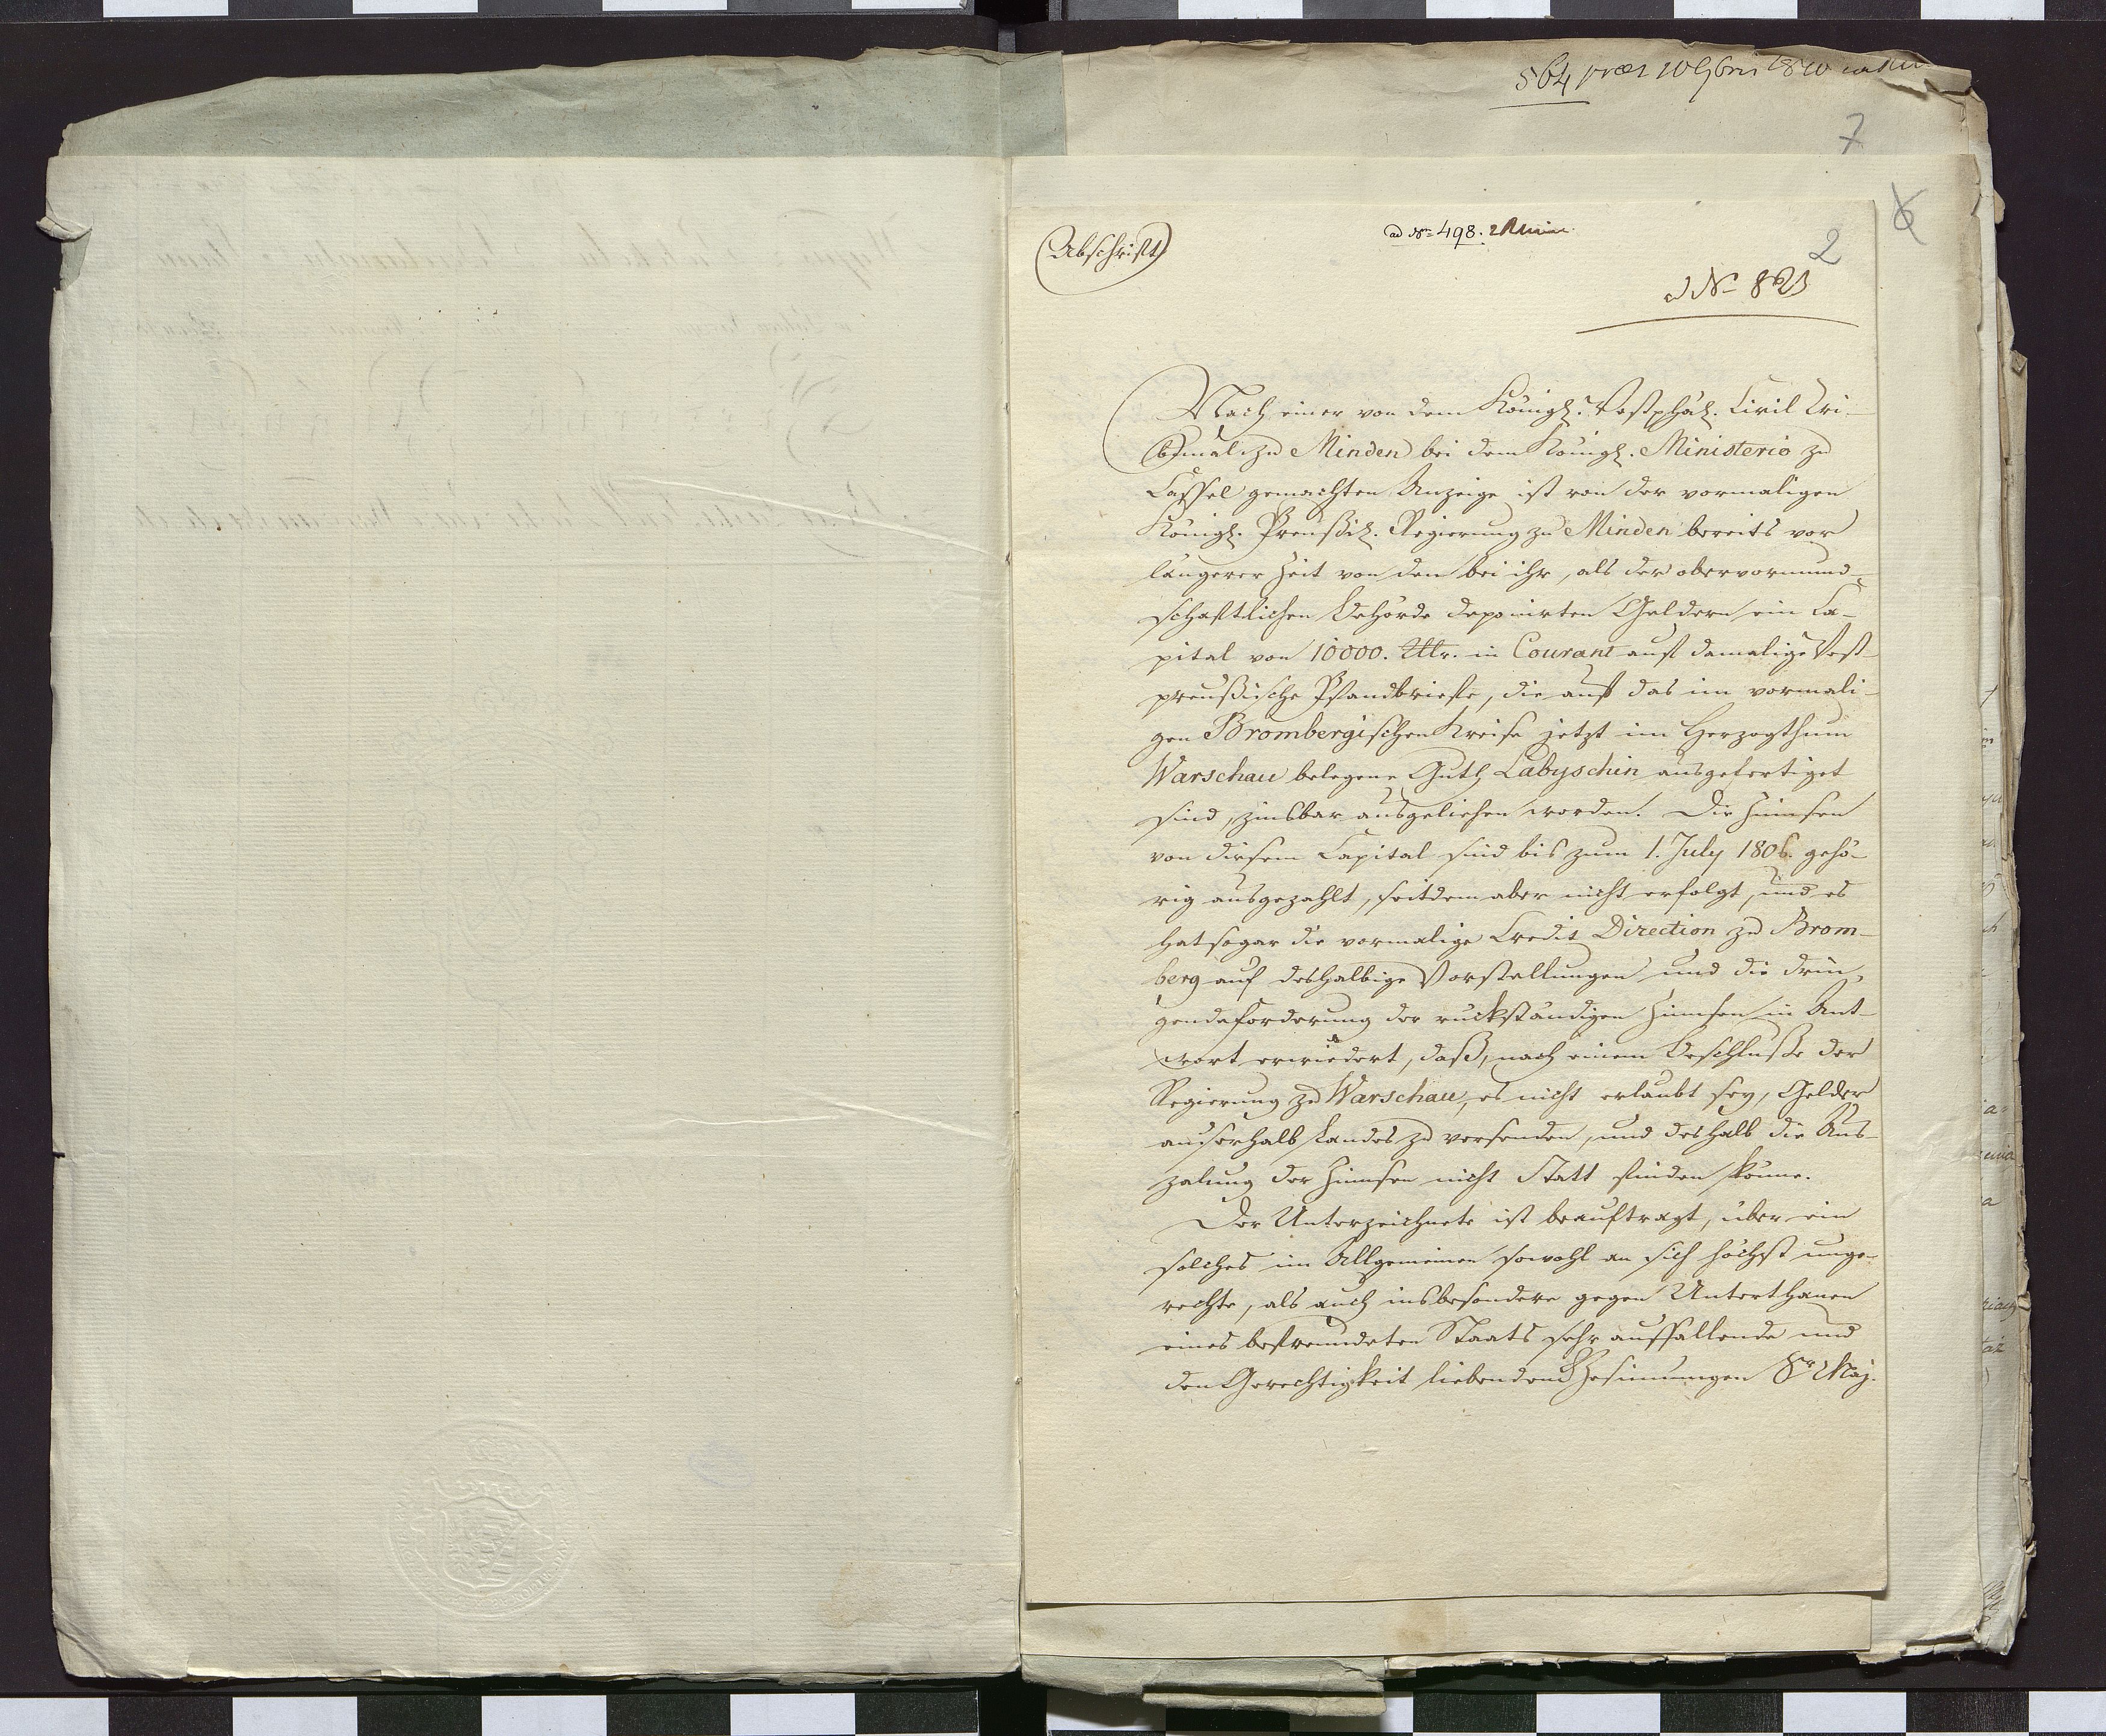 564 præs 10 9bris 1810
7
6
2
(Abschrift)
ad Nr. 498.
ad N 823
Nach einer von dem Königl. Westphäl. Civil Tri-
bunal zu Minden bei dem Königl. Ministerio zu
Cassel gemachten Anzeige ist von der vormaligen
Königl. Preußisch. Regierung zu Minden bereits vor
längerer Zeit von den bei ihr, als der obervormund-
schaftlichen Behörde deponirten Geldern ein Ca-
pital von 10000. Rtlr. in Courant auf damalige West-
preußische Pfandbriefe, die auf das im vormali-
gen Brombergischen Kreise jetzt im Herzogthum
Warschau belegene Guth Labyschin ausgefertiget
sind, zinsbar ausgeliehen worden. Die Zinnsen
von diesem Capital sind bis zum 1. July 1806. gehö-
rig ausgezahlt, seitdem aber nicht erfolgt, und es
hat sogar die vormalige Credit Direction zu Brom-
berg auf deshalbige Vorstellungen und die drin-
gende Forderung der rückständigen Zinnsen in Ant-
wort erwiedert, daß, nach einem Beschluße der
Regierung zu Warschau, es nicht erlaubt sey, Gelder
auserhalb Landes zu versenden, und deshalb die Aus-
zalung der Zinnsen nicht Statt finden könne.
Der Unterzeichnete ist beauftragt, über ein
solches im Allgemeinen sowohl an sich höchst unge-
rechte, als auch insbesondere gegen Unterthanen
eines befreundeten Staats sehr auffallende und
den Gerechtigkeit liebenden Gesinnungen Sr Maj.